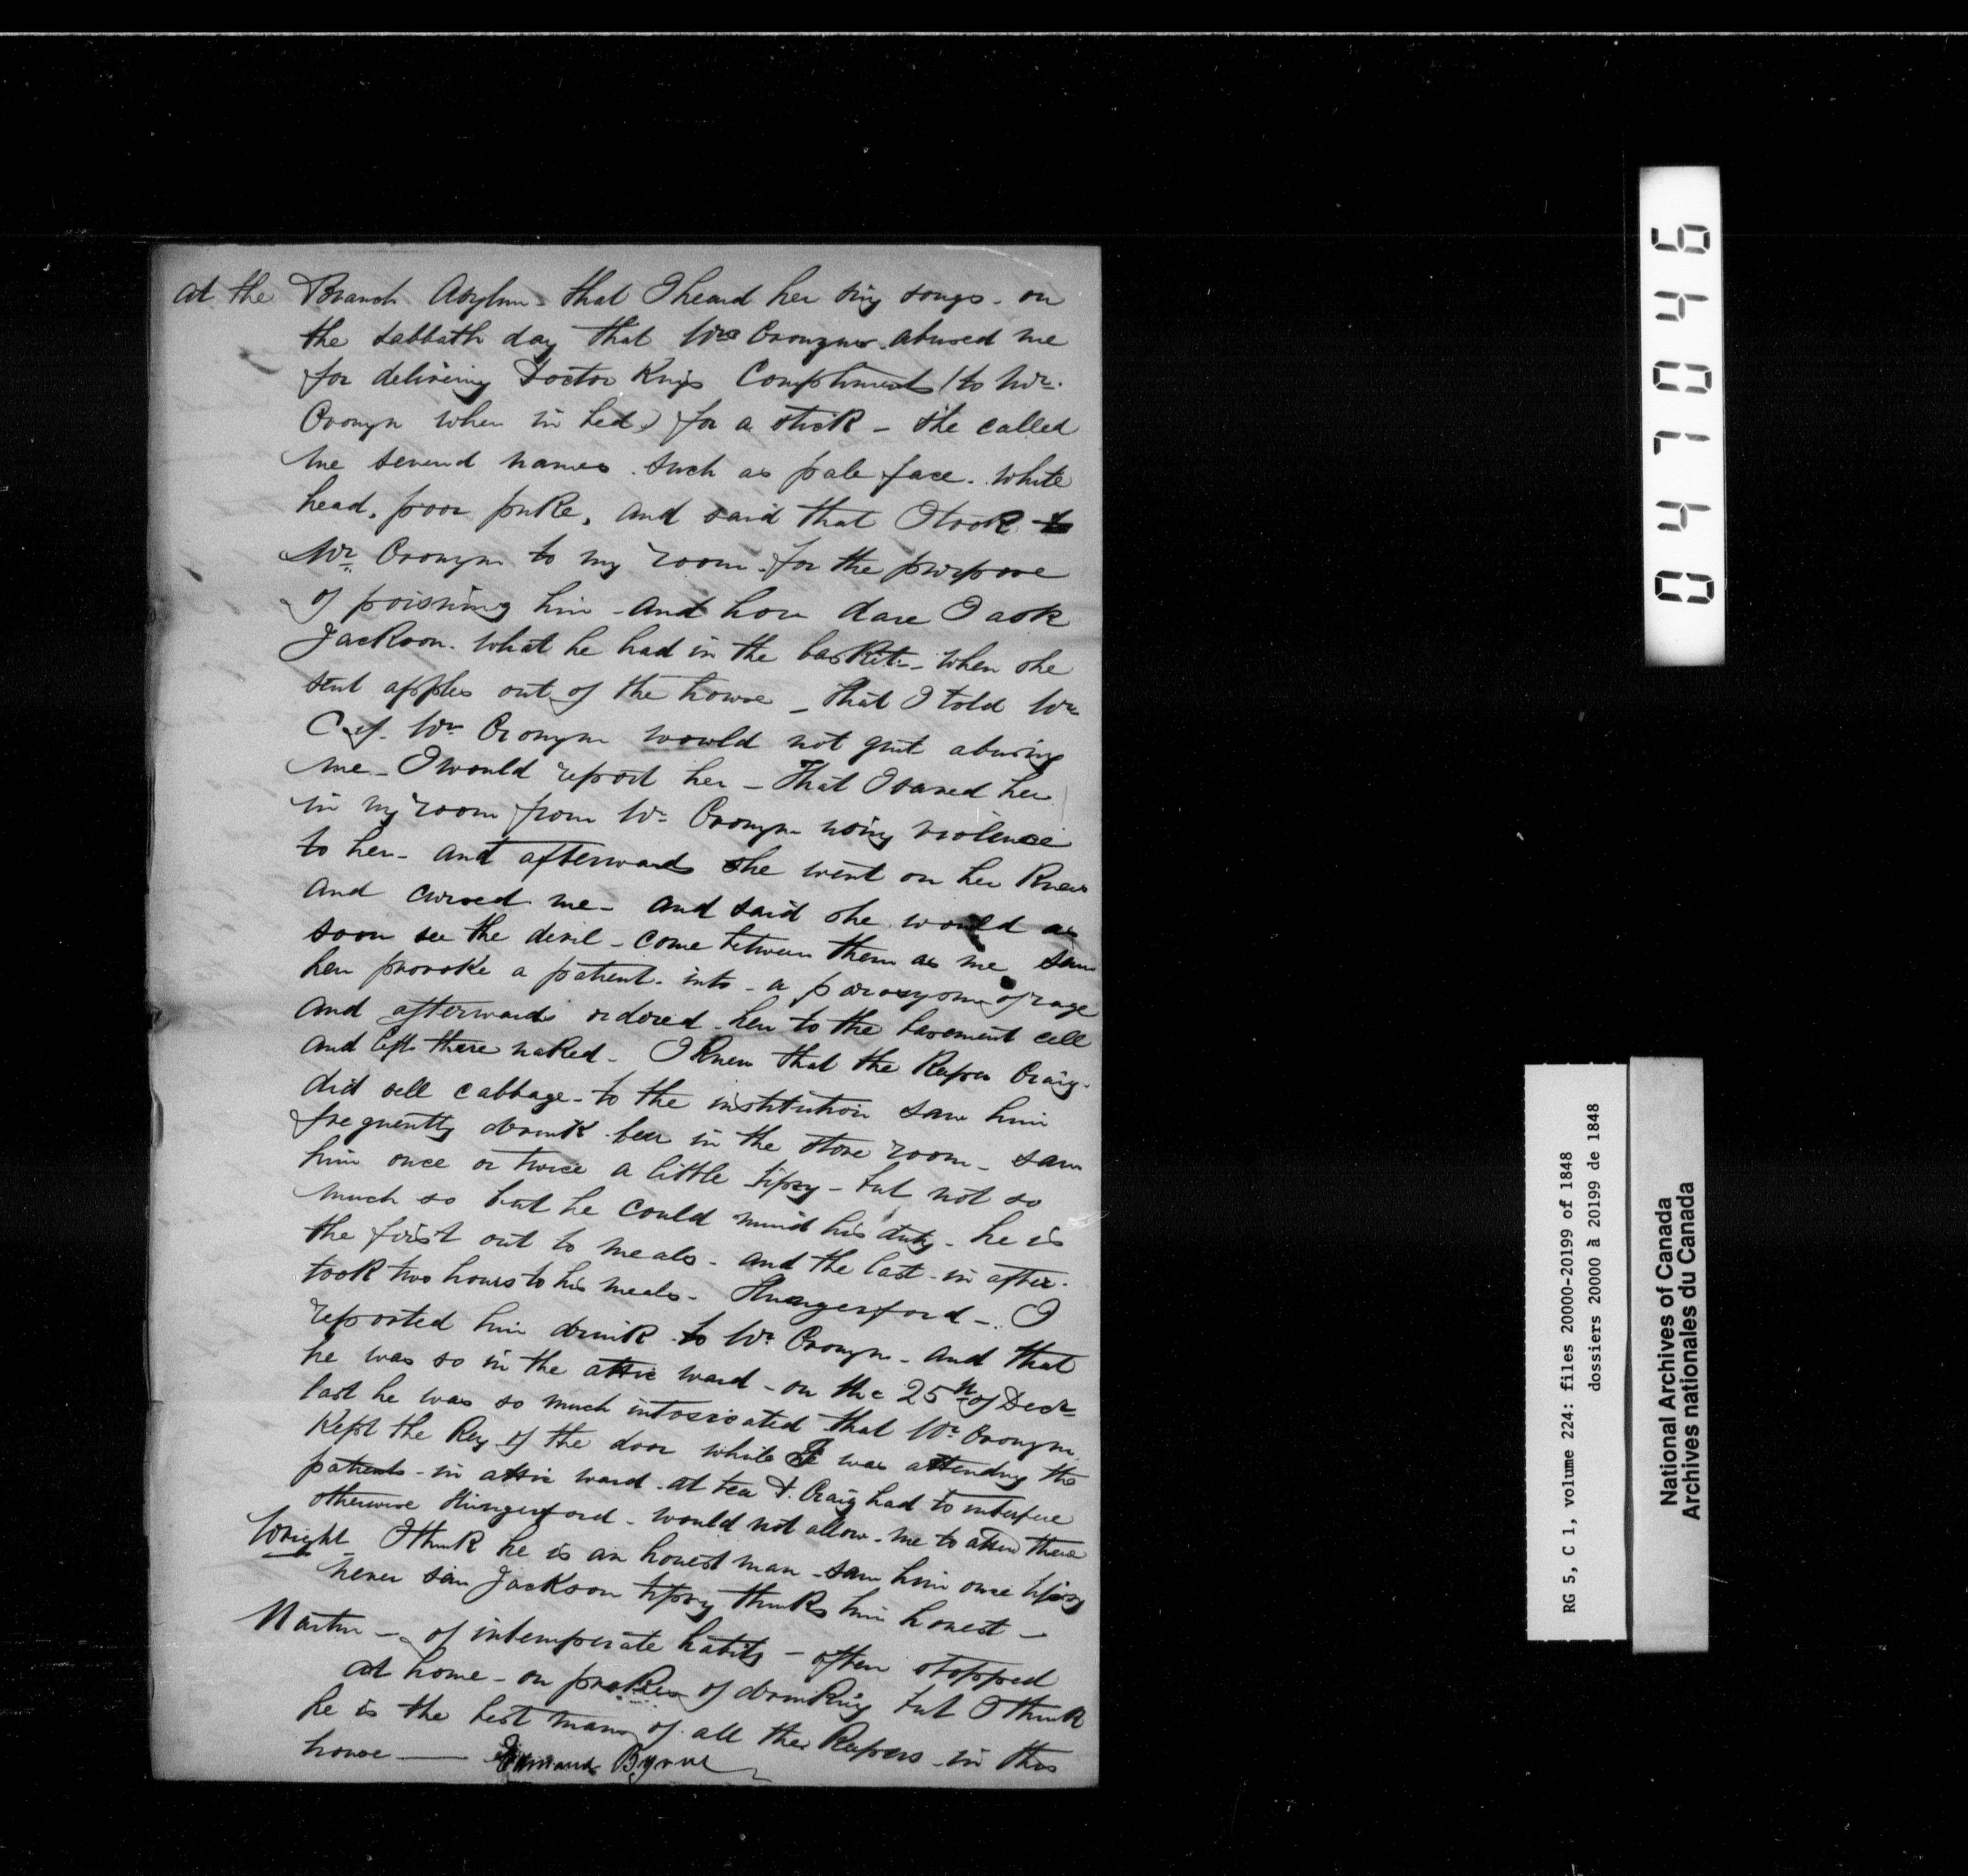 at the Branch Asylum - that I heard her sing songs - on
the sabbath day that Mrs Cronyn abused me
for delivering Doctor Kings Compliments (to Mr.
Cronyn when in bed) for a stick - she called
me several names such as pale face. white
head, poor puke, and said that I took
Mr Cronyn to my room for the purpose
of poisning him - and how dare I ask
Jackson. what he had in the basket - when she
sent apples out of the house - that I told Mr
C. if Mrs Cronyn would not quit abusing
me - I would report her - That I saved her
in my room from Mr Cronyn using violence
to her - and afterwards she went on her knees
and cursed me - and said she would as
soon see the devil - come between them as me saw
her provoke a patient. into - a paroxysm of rage
and afterwards ordered her to the basement cell
and left there naked - I knew that the Keeper Craig.
did sell cabbage - to the institution saw him
frequently drink beer in the store room - saw
him once or twice a little tipsy - but not so
much so but he could mind his duty - he is
the first out to meals - and the last - in after.
took two hours to his meals - Hungerford - I
reported him drunk to Mr Cronyn - and that
he was so in the attic ward - on the 25th of Decr
last he was so much intoxicated that Mr Cronyn
Kept the Key of the door while I was attending the
patients - in attic ward - at tea Craig had to interfere
otherwise Hungerford - would not allow - me to attend there
Wright I think he is an honest man - saw him once tipsy
never saw Jackson tipsy thinks him honest -
Martin - of intemperate habits - often stopped
at home - on of drinking but I think
he is the best man of all the Keepers - in this
house - Byrne
046
047
RG 5, C 1, volume 224: files 20000-20199 of 1848
dossiers 20000 à 20199 de 1848
National Archives of Canada
Archives nationales du Canada